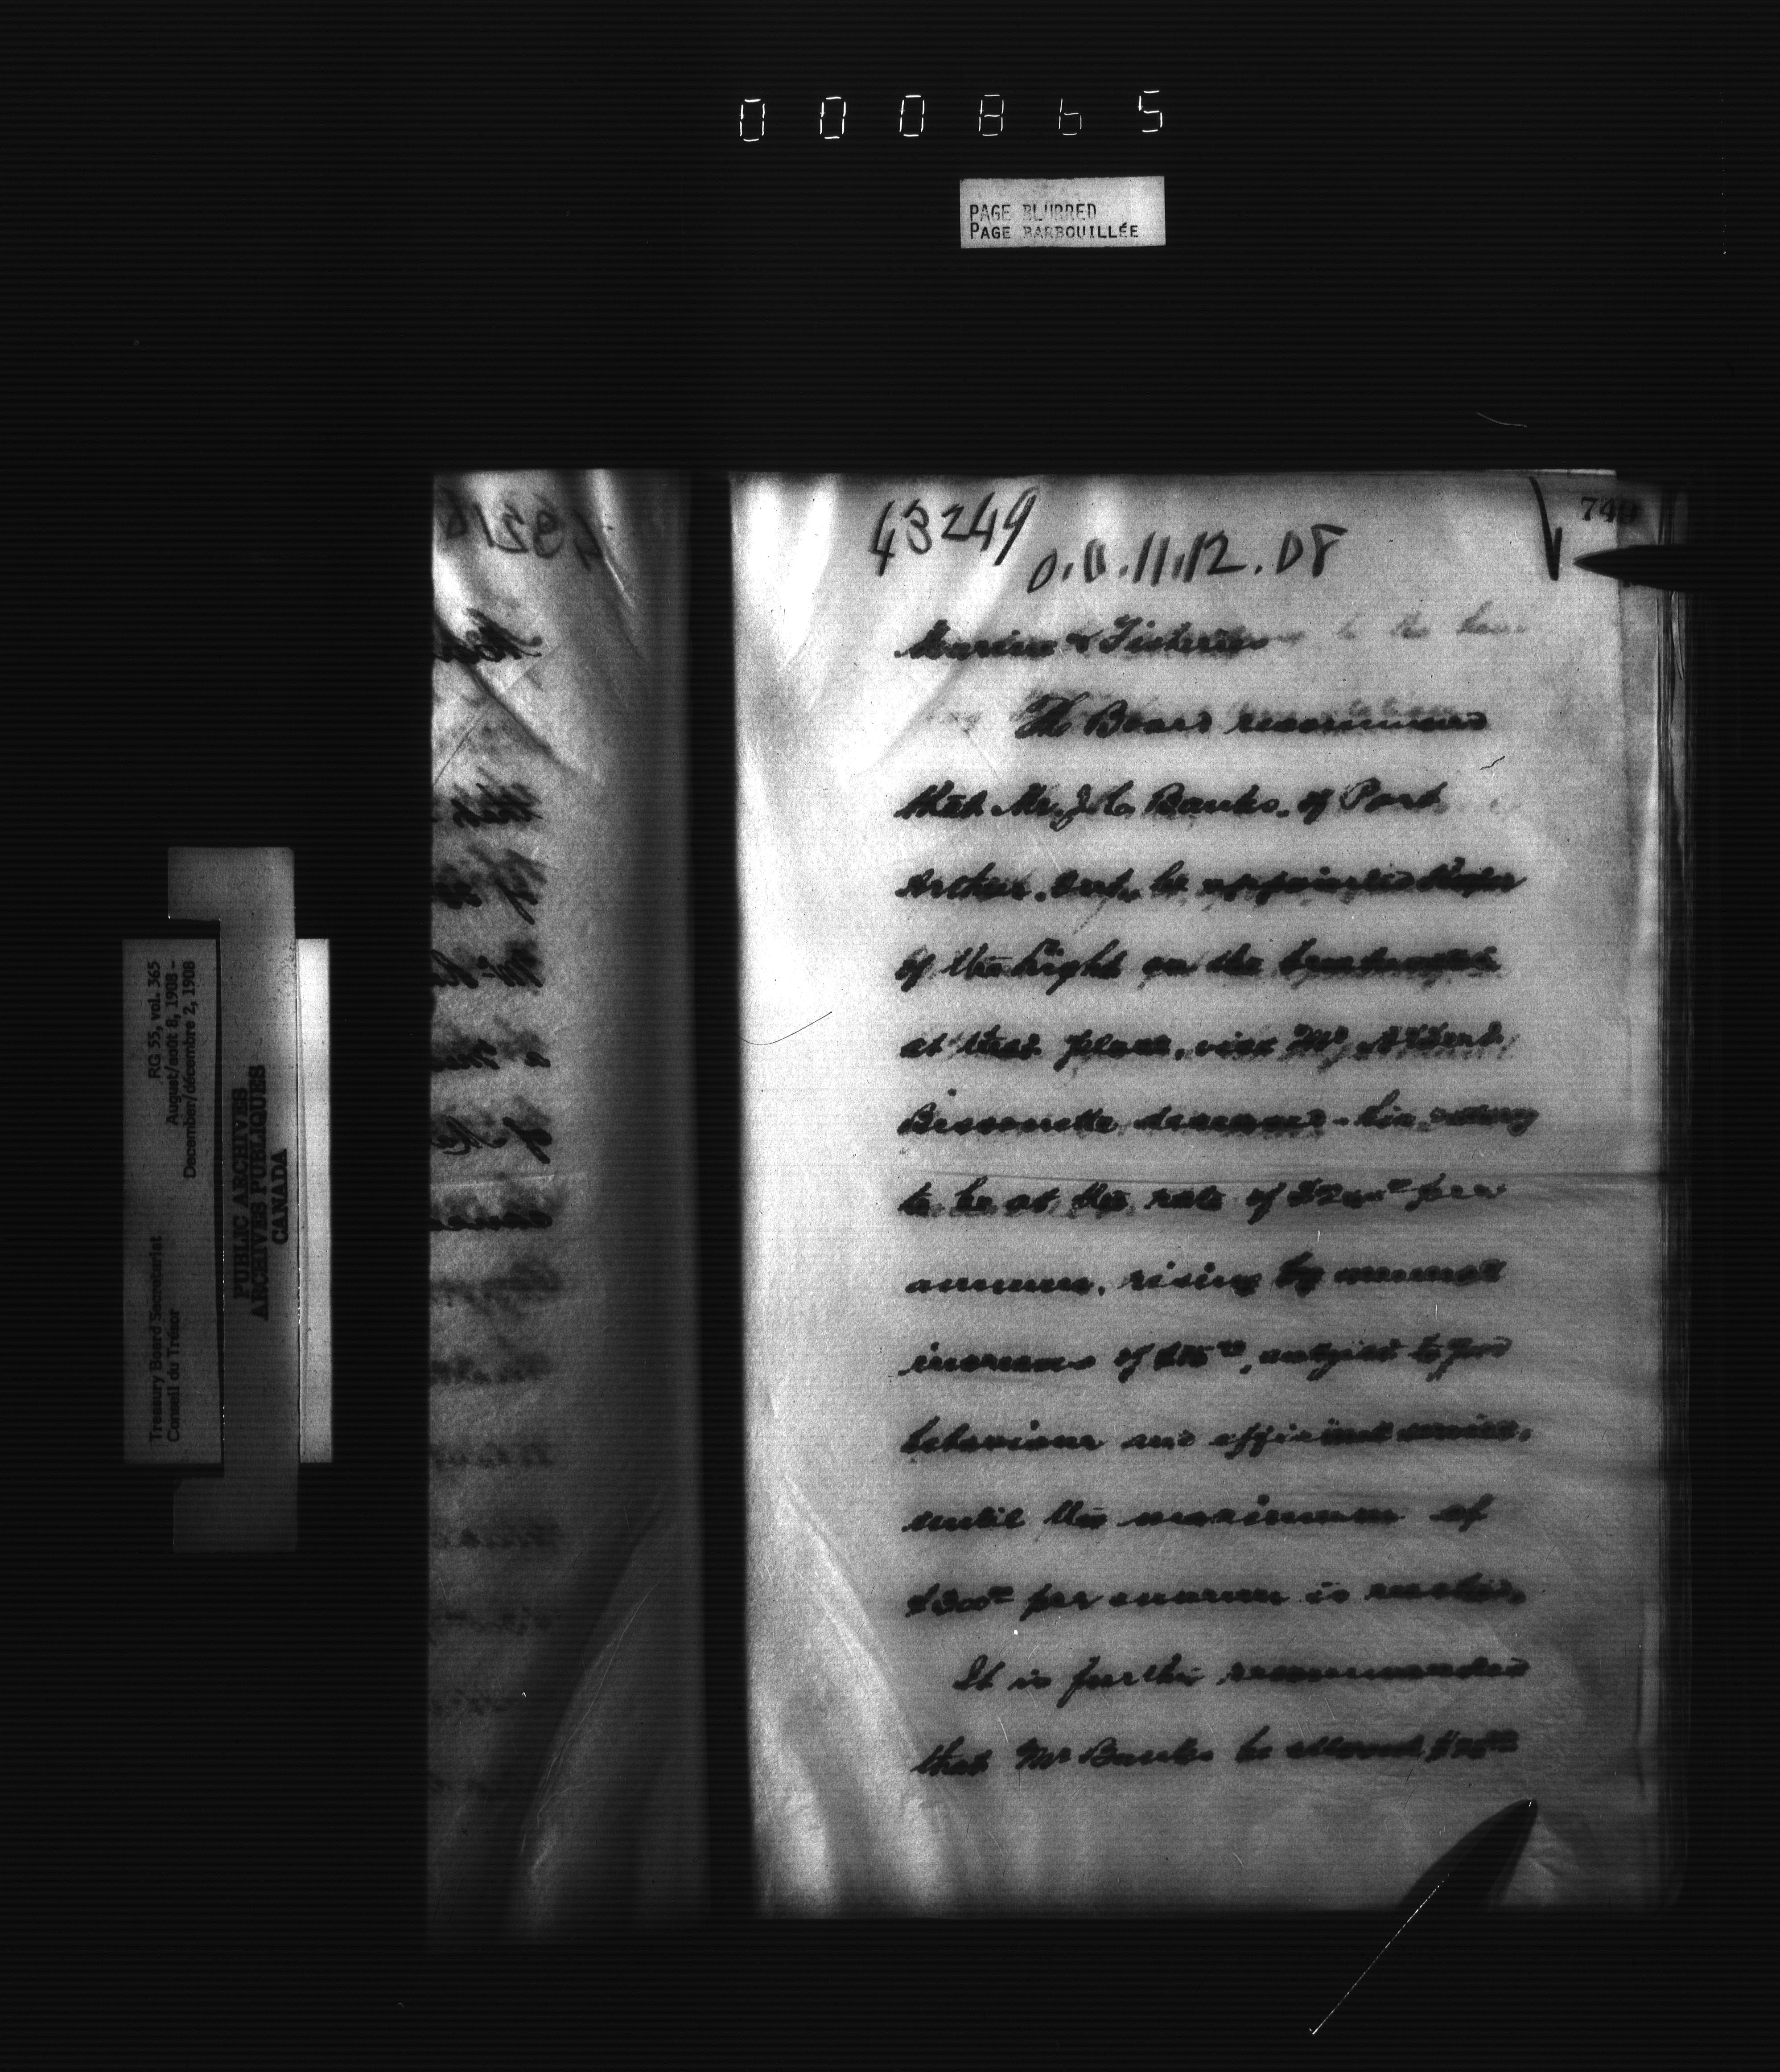 000865
PAGE BLURRED
PAGE BARBOUILLÉE
RG 55, vol. 365
August/août 8, 1908 -
December/décembre 2, 1908
Treasury Board Secretariat
Conseil du Trésor
PUBLIC ARCHIVES
ARCHIVES PUBLIQUES
CANADA
43216
43249
749
O.C. 11.12.08
Marine & Fisheries
The Board recommend
that Mr. J. C. Banks, of Port
Arthur, Ont., be appointed Keeper
of the light on the breakwater
at that place, vice Mr. Albert
Bissonette deceased - his salary
to be at the rate of $200 00 per
annum, rising by annual
increases of of, subject to good
behaviour and efficient service,
until the maximum of
$300 00 per annum is reached.
It is further recommended
that Mr Banks be allowed